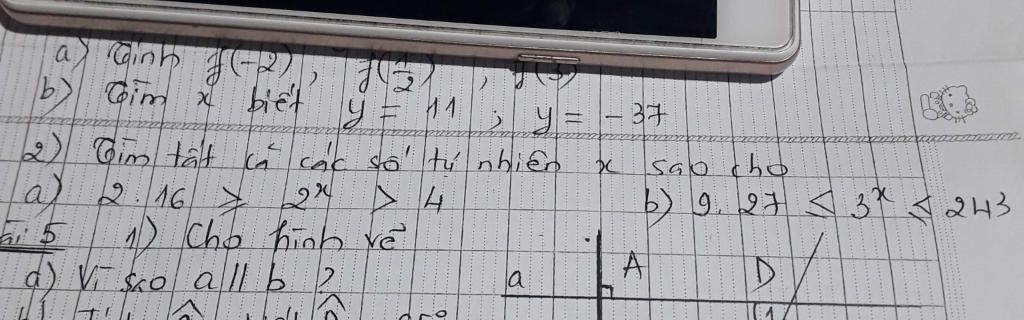 a) Tính f(-2), f(1/2), f(3)
b) Tìm x biết y = 11 ; y = -37
2) Tìm tất cả các số tự nhiên x sao cho
a) 2.16 ≥ 2ˣ > 4 b) 9.27 ≤ 3ˣ ≤ 243
Bài 5 1) Cho hình vẽ
a) Vì sao a // b ?
a A D